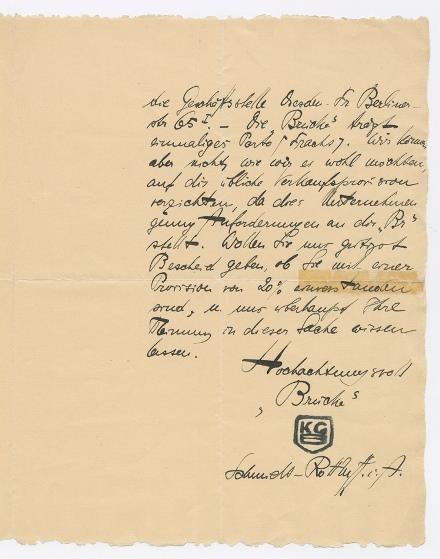 die Geschäftsstelle Dresden-Fr Berliner-
str 65 I. – Die „Brücke“ trägt
einmaliges Porto (Fracht). Wir können
aber nicht, wie wir es wohl möchten,
auf die übliche Verkaufsprovision
verzichten, da dies Unternehmen
genug Anforderungen an die „Br“
stellt. Wollen Sie uns
Bescheid geben, ob Sie mit einer
Provision von 20% einverstanden
sind, u. uns überhaupt Ihre
Meinung in dieser Sache wissen
lassen.
Hochachtungsvoll
„Brücke“
KG
Schmidt-Rottluff. i. A.